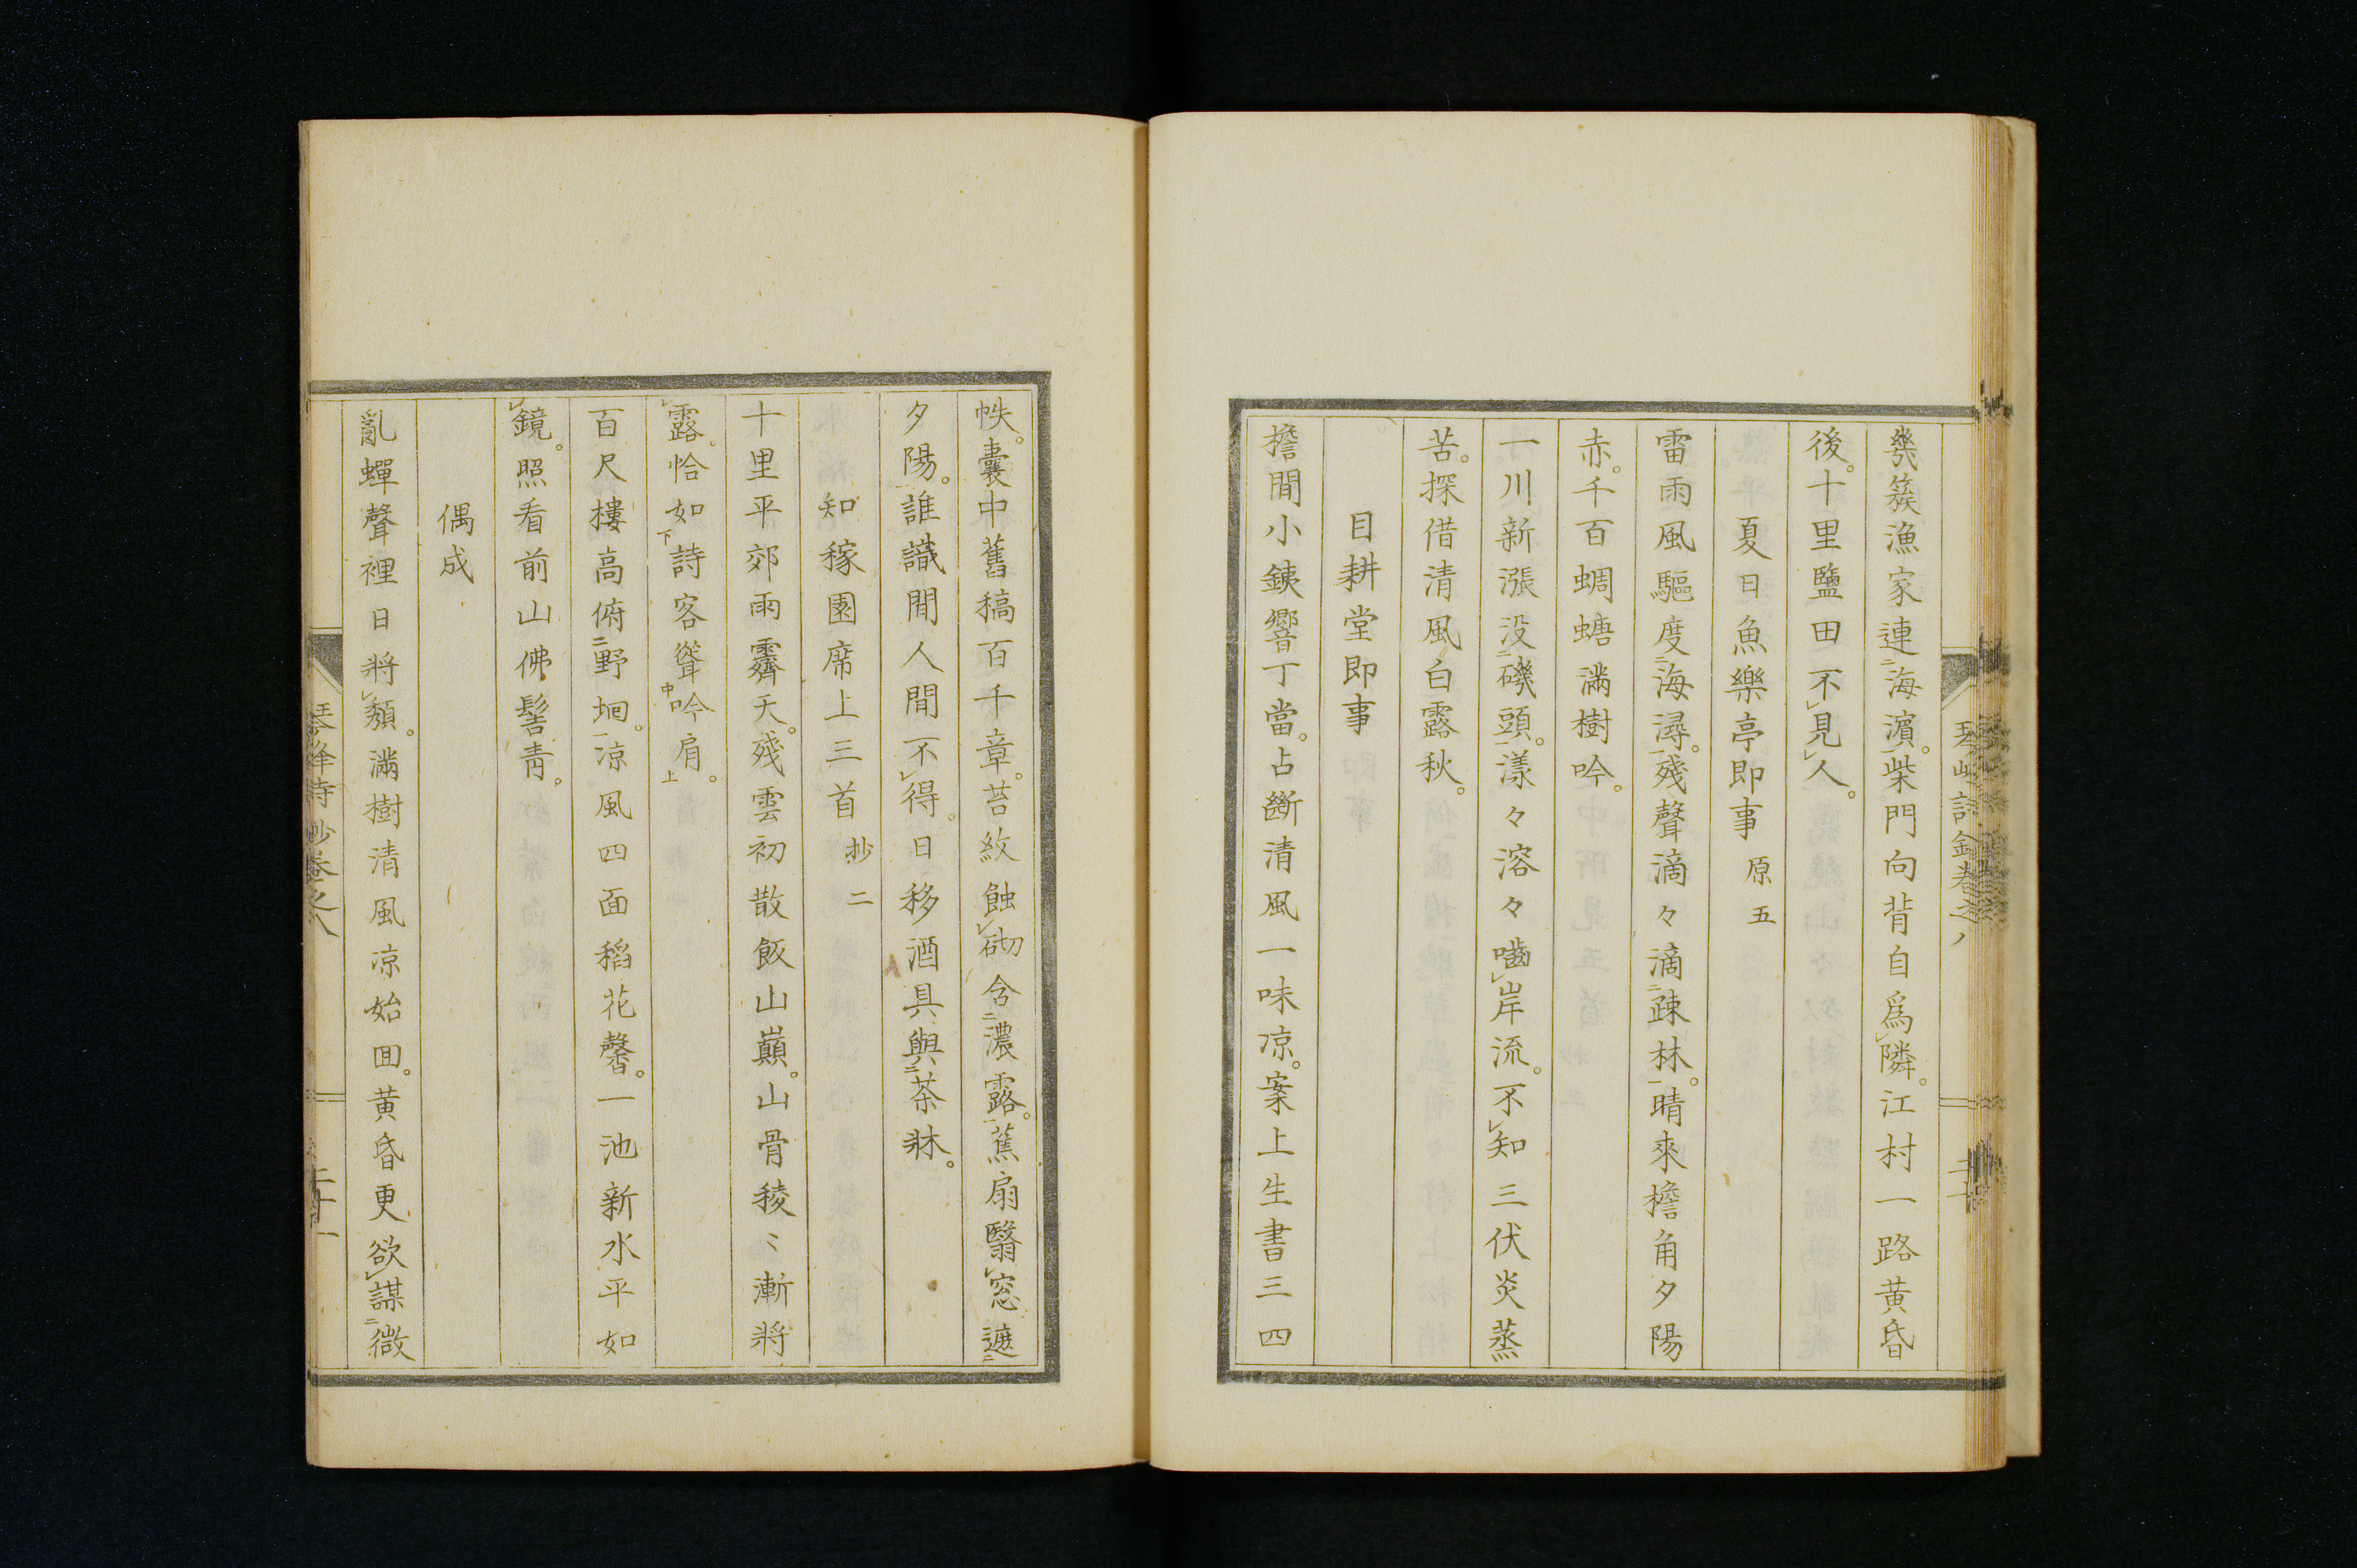 幾簇漁家連二海濱一。柴門向背自爲レ隣。江村一路黄昏
後。十里鹽田不レ見レ人。
夏日魚樂亭即事 原五
雷雨風驅度二海潯一。殘聲滴々滴二疎林一。晴來檐角夕陽
赤。千百蜩螗滿樹吟。
一川新漲没二磯頭一。漾々溶々嚙レ岸流。不レ知三伏炎蒸
苦。探借清風白露秋。
目耕堂即事
檐間小鐵響丁當。占斷清風一味凉。案上生書三四
帙。嚢中舊稿百千章。苔紋蝕レ砌含二濃露一。蕉扇翳レ窓遮二
夕陽一。誰識閒人閒不レ得。日移酒具與二茶牀一。
知稼園席上三首 抄二
十里平郊雨霽天。殘雲初散飯山巓。山骨稜〻漸將
レ露。恰如下詩客聳中吟肩上。
百尺樓高俯二野坰一。凉風四面稻花馨。一池新水平如
レ鏡。照看前山佛髻青。
偶成
亂蟬聲裡日將レ頽。滿樹清風凉始回。黄昏更欲レ謀二微
卷之八